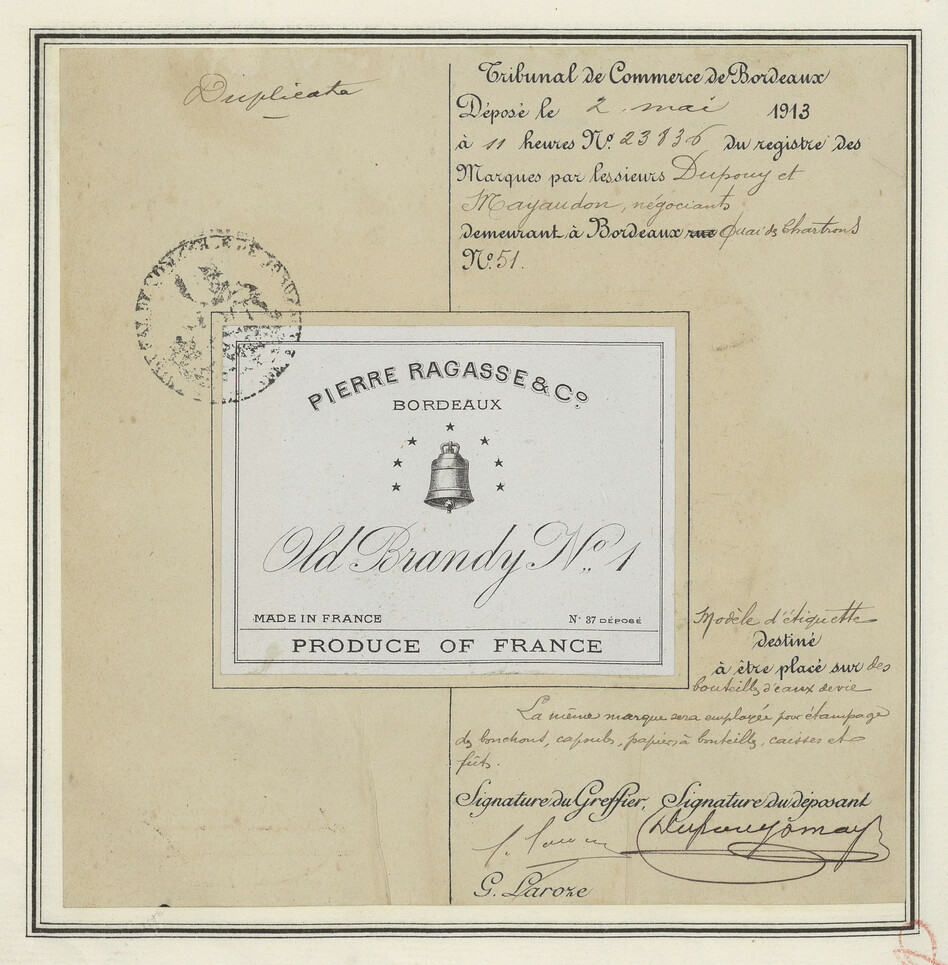 Duplicata
Tribunal de Commerce de Bordeaux
Déposé le 2 mai 1913
à 11 heures No. 23836 du registre des
Marques par les sieurs Dupouy et
Mayaudon, négociants
demeurant à Bordeaux rue Quai des Chartrons
No. 51.
PIERRE RAGASSE & Co
BORDEAUX
Old Brandy No 1
MADE IN FRANCE
No 37 DÉPOSÉ
PRODUCE OF FRANCE
Modèle d'étiquette
destiné
à être placé sur des
bouteilles d'eaux de vie
La même marque sera employée pour étampage
des bouchons, capsules, papiers à bouteilles, caisses et
fûts.
Signature du Greffier, Signature du déposant
G. Laroze